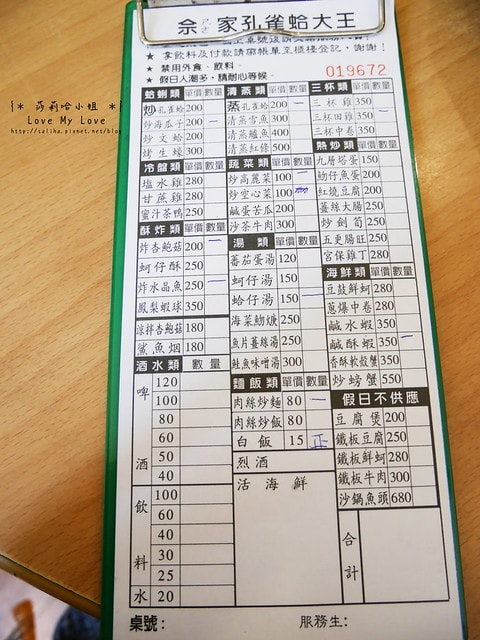 佘家孔雀蛤大王
★ 拿飲料及付款請帶帳單至櫃檯登記，謝謝！
★ 禁用外食、飲料。
★ 假日人潮多，請耐心等候。
019672
{* 莎莉哈小姐 *}
Love My Love
http://saliha.pixnet.net/blog
蛤蜊類 單價 數量
炒孔雀蛤 200
炒海瓜子 200 一
炒文蛤 200
烤生蠔 300
冷盤類 單價 數量
塩水雞 280
甘蔗雞 280
蜜汁茶鴨 250
酥炸類 單價 數量
炸杏鮑菇 200 一
蚵仔酥 250
炸水晶魚 250 一
鳳梨蝦球 350
涼拌杏鮑菇 180
鯊魚烟 180
酒水類 數量
啤酒
120
100
80
60
50
40
飲料
100
60
50
40
30
25
水 20
清蒸類 單價 數量
蒸孔雀蛤 200
清蒸雪魚 300
清蒸鱸魚 400
清蒸紅條 500
蔬菜類 單價 數量
炒高麗菜 100 一
炒空心菜 100
鹹蛋苦瓜 200
沙茶牛肉 300
湯類 單價 數量
蕃茄蛋湯 120
蚵仔湯 150 一
蛤仔湯 150 一
海菜魩𩵚 250
魚片薑絲湯 250
鮭魚味噌湯 300
麵飯類 單價 數量
肉絲炒麵 80 一
肉絲炒飯 80
白飯 15 正
烈酒
活海鮮
三杯類 單價 數量
三杯雞 350
三杯田雞 350 一
三杯中卷 350
熱炒類 單價 數量
九層塔蛋 150
魩仔魚蛋 200
紅燒豆腐 200
薑絲大腸 250
炒劍筍 250
五更腸旺 250
宮保雞丁 280
海鮮類 單價 數量
豆鼓鮮蚵 280
蔥爆中卷 280
鹹水蝦 350
鹹酥蝦 350 一
香酥軟殼蟹 350
炒螃蟹 550
假日不供應
豆腐煲 200
鐵板豆腐 250
鐵板鮮蚵 280
鐵板牛肉 300
沙鍋魚頭 680
合計
桌號：
服務生：